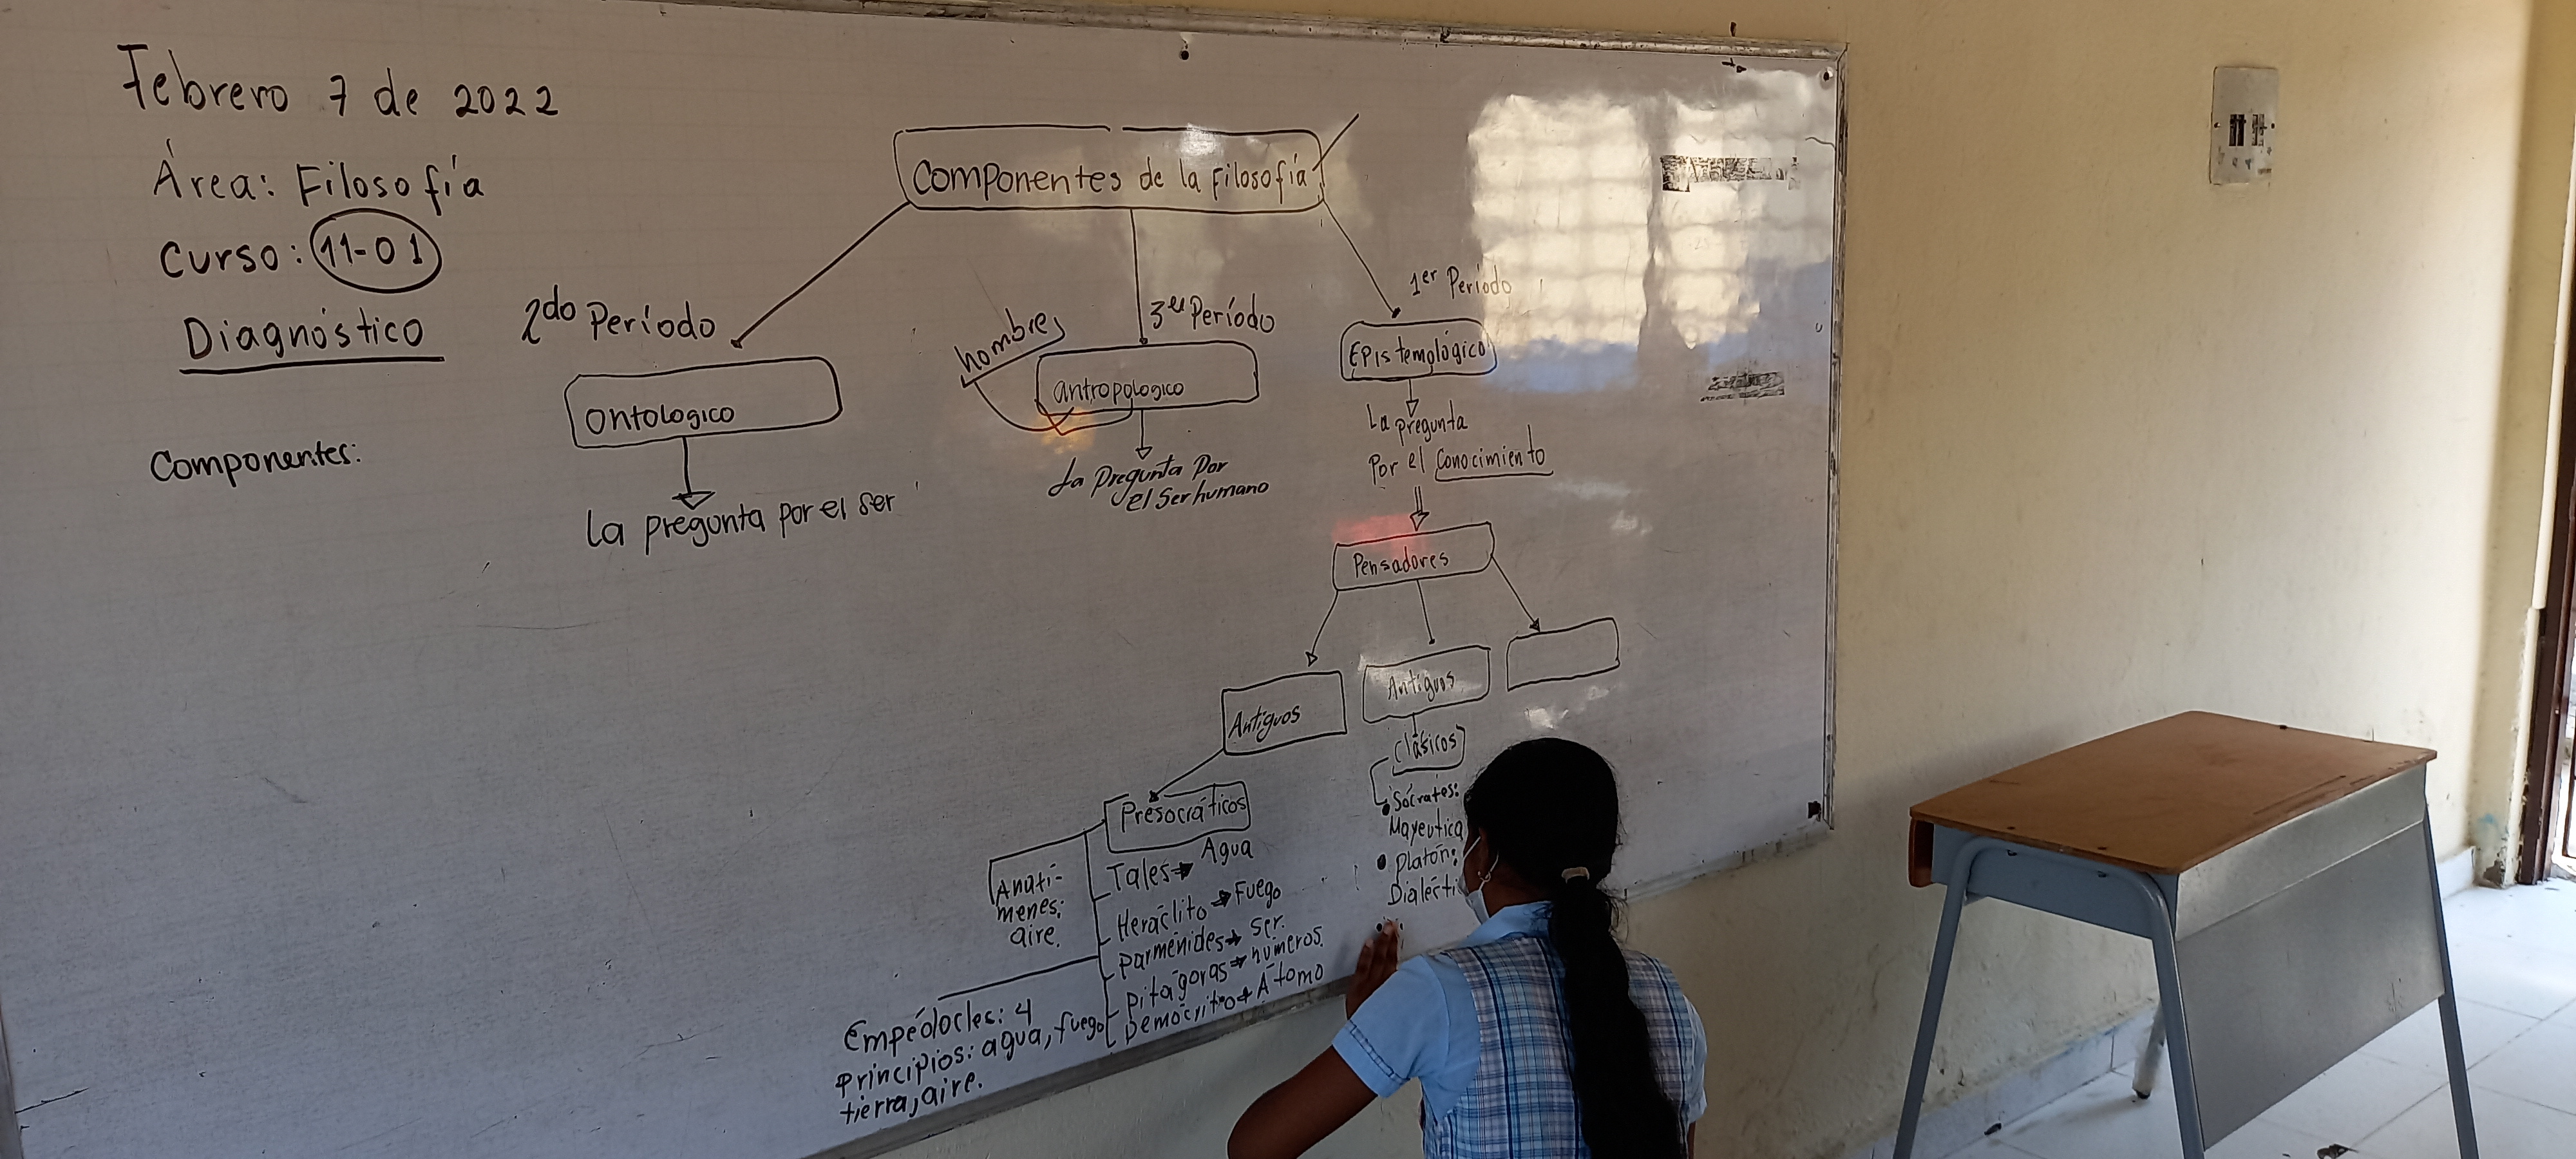 Febrero 7 de 2022
Área: Filosofía
Curso: 11-01
Diagnóstico
Componentes:
Componentes de la Filosofía
2do Período
Ontologico
La pregunta por el ser
hombres
3er Período
antropologico
La Pregunta Por
el Ser humano
1er Período
Epistemológico
La pregunta
Por el Conocimiento
Pensadores
Antiguos
Antiguos
Clásicos
Presocráticos
Tales → Agua
Heráclito → Fuego
Parménides → Ser.
Pitágoras → números.
Demócrito → Átomo
aire.
Empédocles: 4
Principios: agua, fuego
tierra, aire.
• Sócrates:
Mayeutica
• Platón: